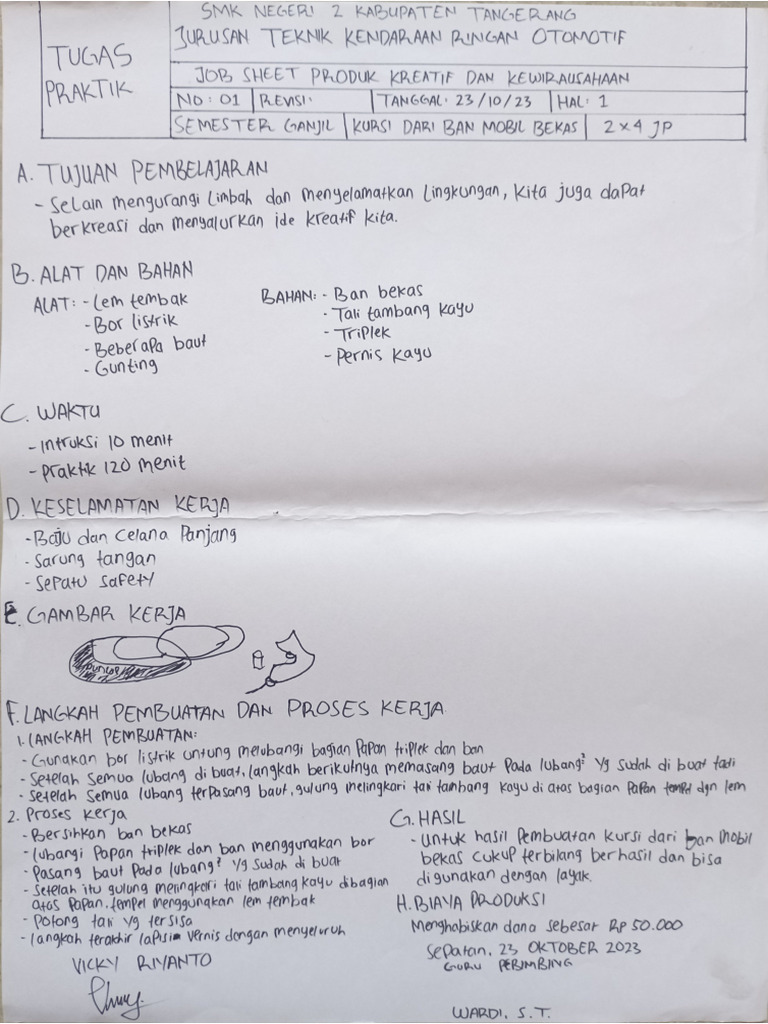 SMK NEGERI 2 KABUPATEN TANGERANG
JURUSAN TEKNIK KENDARAAN RINGAN OTOMOTIF
TUGAS
PRAKTIK
JOB SHEET PRODUK KREATIF DAN KEWIRAUSAHAAN
NO: 01 REVISI: TANGGAL: 23/10/23 HAL: 1
SEMESTER GANJIL KURSI DARI BAN MOBIL BEKAS 2 x 4 JP
A. TUJUAN PEMBELAJARAN
- Selain mengurangi limbah dan menyelamatkan lingkungan, kita juga dapat
berkreasi dan menyalurkan ide kreatif kita.
B. ALAT DAN BAHAN
ALAT: - Lem tembak
- Bor listrik
- Beberapa baut
- Gunting
BAHAN: - Ban bekas
- Tali tambang kayu
- Triplek
- Pernis kayu
C. WAKTU
- Intruksi 10 menit
- Praktik 120 menit
D. KESELAMATAN KERJA
- Baju dan celana Panjang
- Sarung tangan
- Sepatu safety
E. GAMBAR KERJA
DUNLOP
F. LANGKAH PEMBUATAN DAN PROSES KERJA
1. LANGKAH PEMBUATAN:
- Gunakan bor listrik untung melubangi bagian Papan triplek dan ban
- Setelah semua lubang di buat, langkah berikutnya memasang baut Pada lubang² yg sudah di buat tadi
- Setelah semua lubang terpasang baut, gulung melingkari tali tambang kayu di atas bagian Papan tempel dgn lem
2. Proses kerja
- Bersihkan ban bekas
- lubangi Papan triplek dan ban menggunakan bor
- Pasang baut Pada lubang² yg sudah di buat
- Setelah itu gulung melingkari tali tambang kayu dibagian
atas Papan. tempel menggunakan lem tembak
- Potong tali yg tersisa
- langkah terakhir lapisi vernis dengan menyeluruh
VICKY RIYANTO
G. HASIL
- Untuk hasil Pembuatan kursi dari ban mobil
bekas cukup terbilang berhasil dan bisa
digunakan dengan layak.
H. BIAYA PRODUKSI
Menghabiskan dana sebesar Rp 50.000
Sepatan, 23 OKTOBER 2023
GURU PEBIMBING
WARDI, S.T.